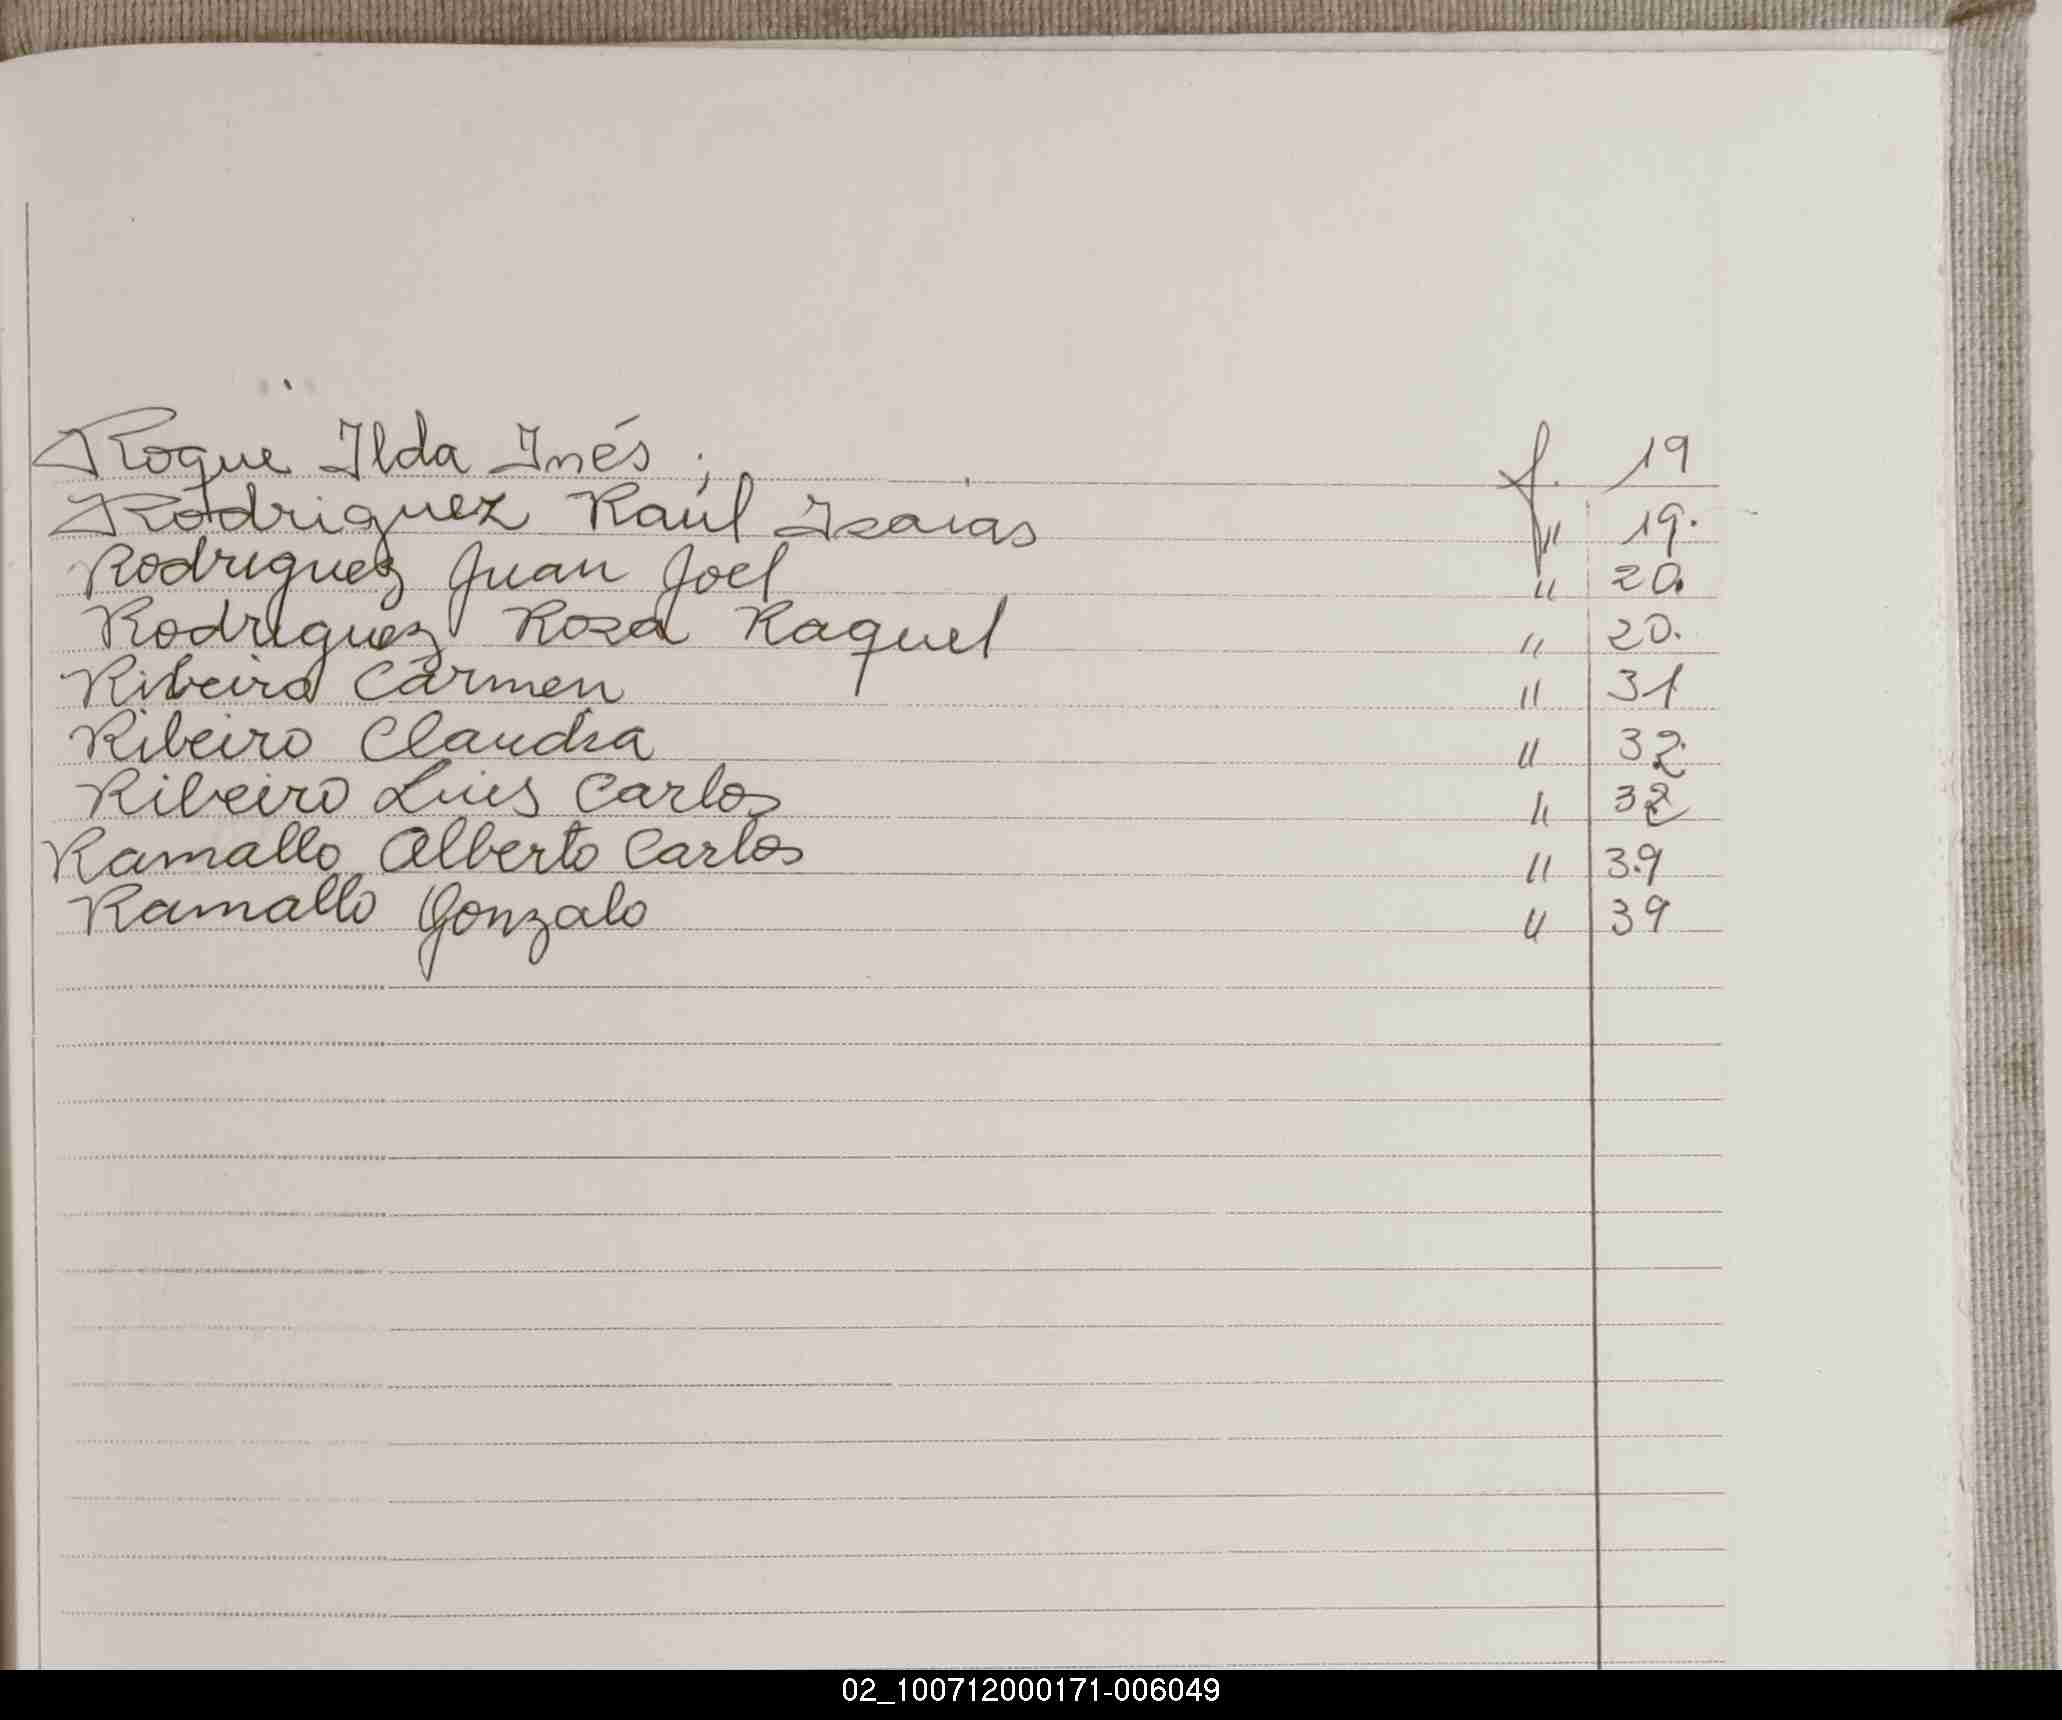 Roque Ilda Inés ; f. 19
Rodriguez Raúl Isaias " 19.
Rodriguez Juan Joel " 20.
Rodriguez Rosa Raquel " 20.
Ribeiro Carmen " 31
Ribeiro Claudia " 32.
Ribeiro Luis Carlos " 32
Ramallo Alberto Carlos " 39
Ramallo Gonzalo " 39
02_100712000171-006049